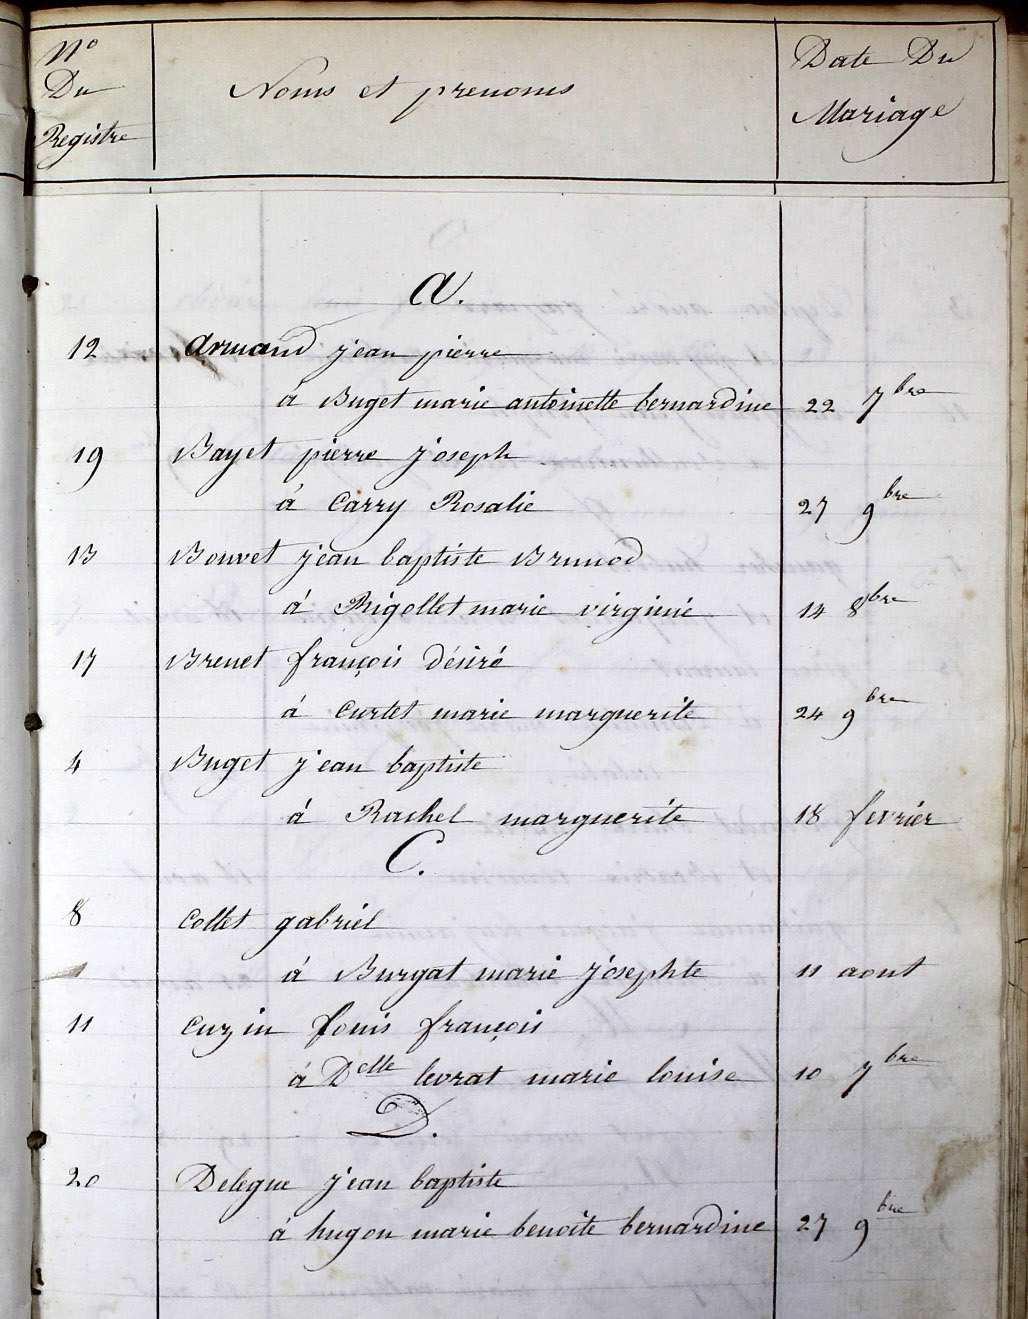 N° Du Registre
Noms et prenoms
Date Du Mariage
A.
12 Armand jean pierre
à Buget marie antoinette bernardine 22 7bre
19 Bayet pierre joseph
à Carry Rosalie 27 9bre
13 Bouvet jean baptiste Brunod
à Rigollet marie virginie 14 8bre
17 Brenet françois désiré
à Curtet marie marguerite 24 9bre
4 Buget jean baptiste
à Rachel marguerite 18 fevrier
C.
8 Collet gabriel
à Burgat marie josephte 11 aout
11 Cuzin Louis françois
à Delle levrat marie louise 10 7bre
D.
20 Delegue jean baptiste
à hugon marie benoite bernardine 27 9bre